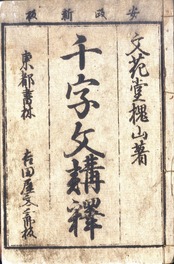 安政新板
文花堂槐山著
千字文講釋
東都書林
吉田屋文三郎板